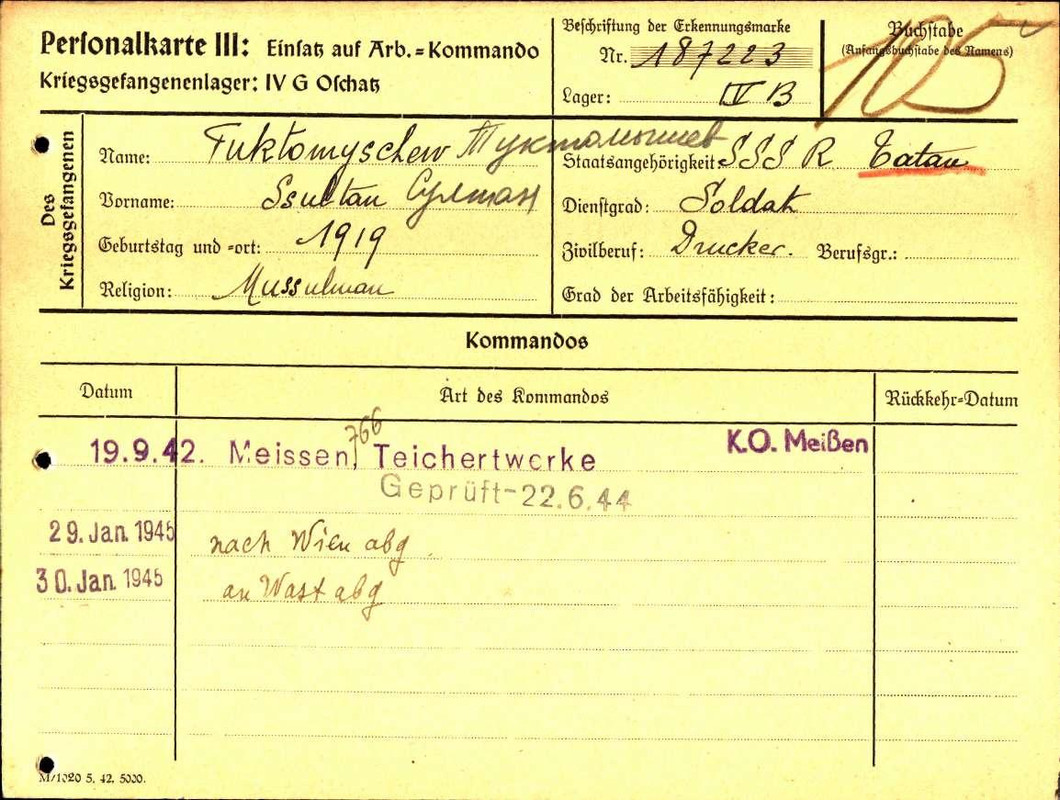 Personalkarte III: Einsatz auf Arb.=Kommando
Kriegsgefangenenlager: IV G Oschatz
Beschriftung der Erkennungsmarke
Nr. 187223
Lager: IV B
Buchstabe
(Anfangsbuchstabe des Namens)
105
Des Kriegsgefangenen
Name: Tuktomyschew Туктомышев
Vorname: Ssultan Султан
Geburtstag und =ort: 1919
Religion: Mussulman
Staatsangehörigkeit: SSSR Tatar
Dienstgrad: Soldat
Zivilberuf: Drucker. Berufsgr.:
Grad der Arbeitsfähigkeit:
Kommandos
Datum Art des Kommandos Rückkehr=Datum
19.9.42. Meissen, 766 Teichertwerke K.O. Meißen
Geprüft-22.6.44
29. Jan. 1945 nach Wien abg
30. Jan. 1945 an Wast abg
M/1020 5. 42. 5000.